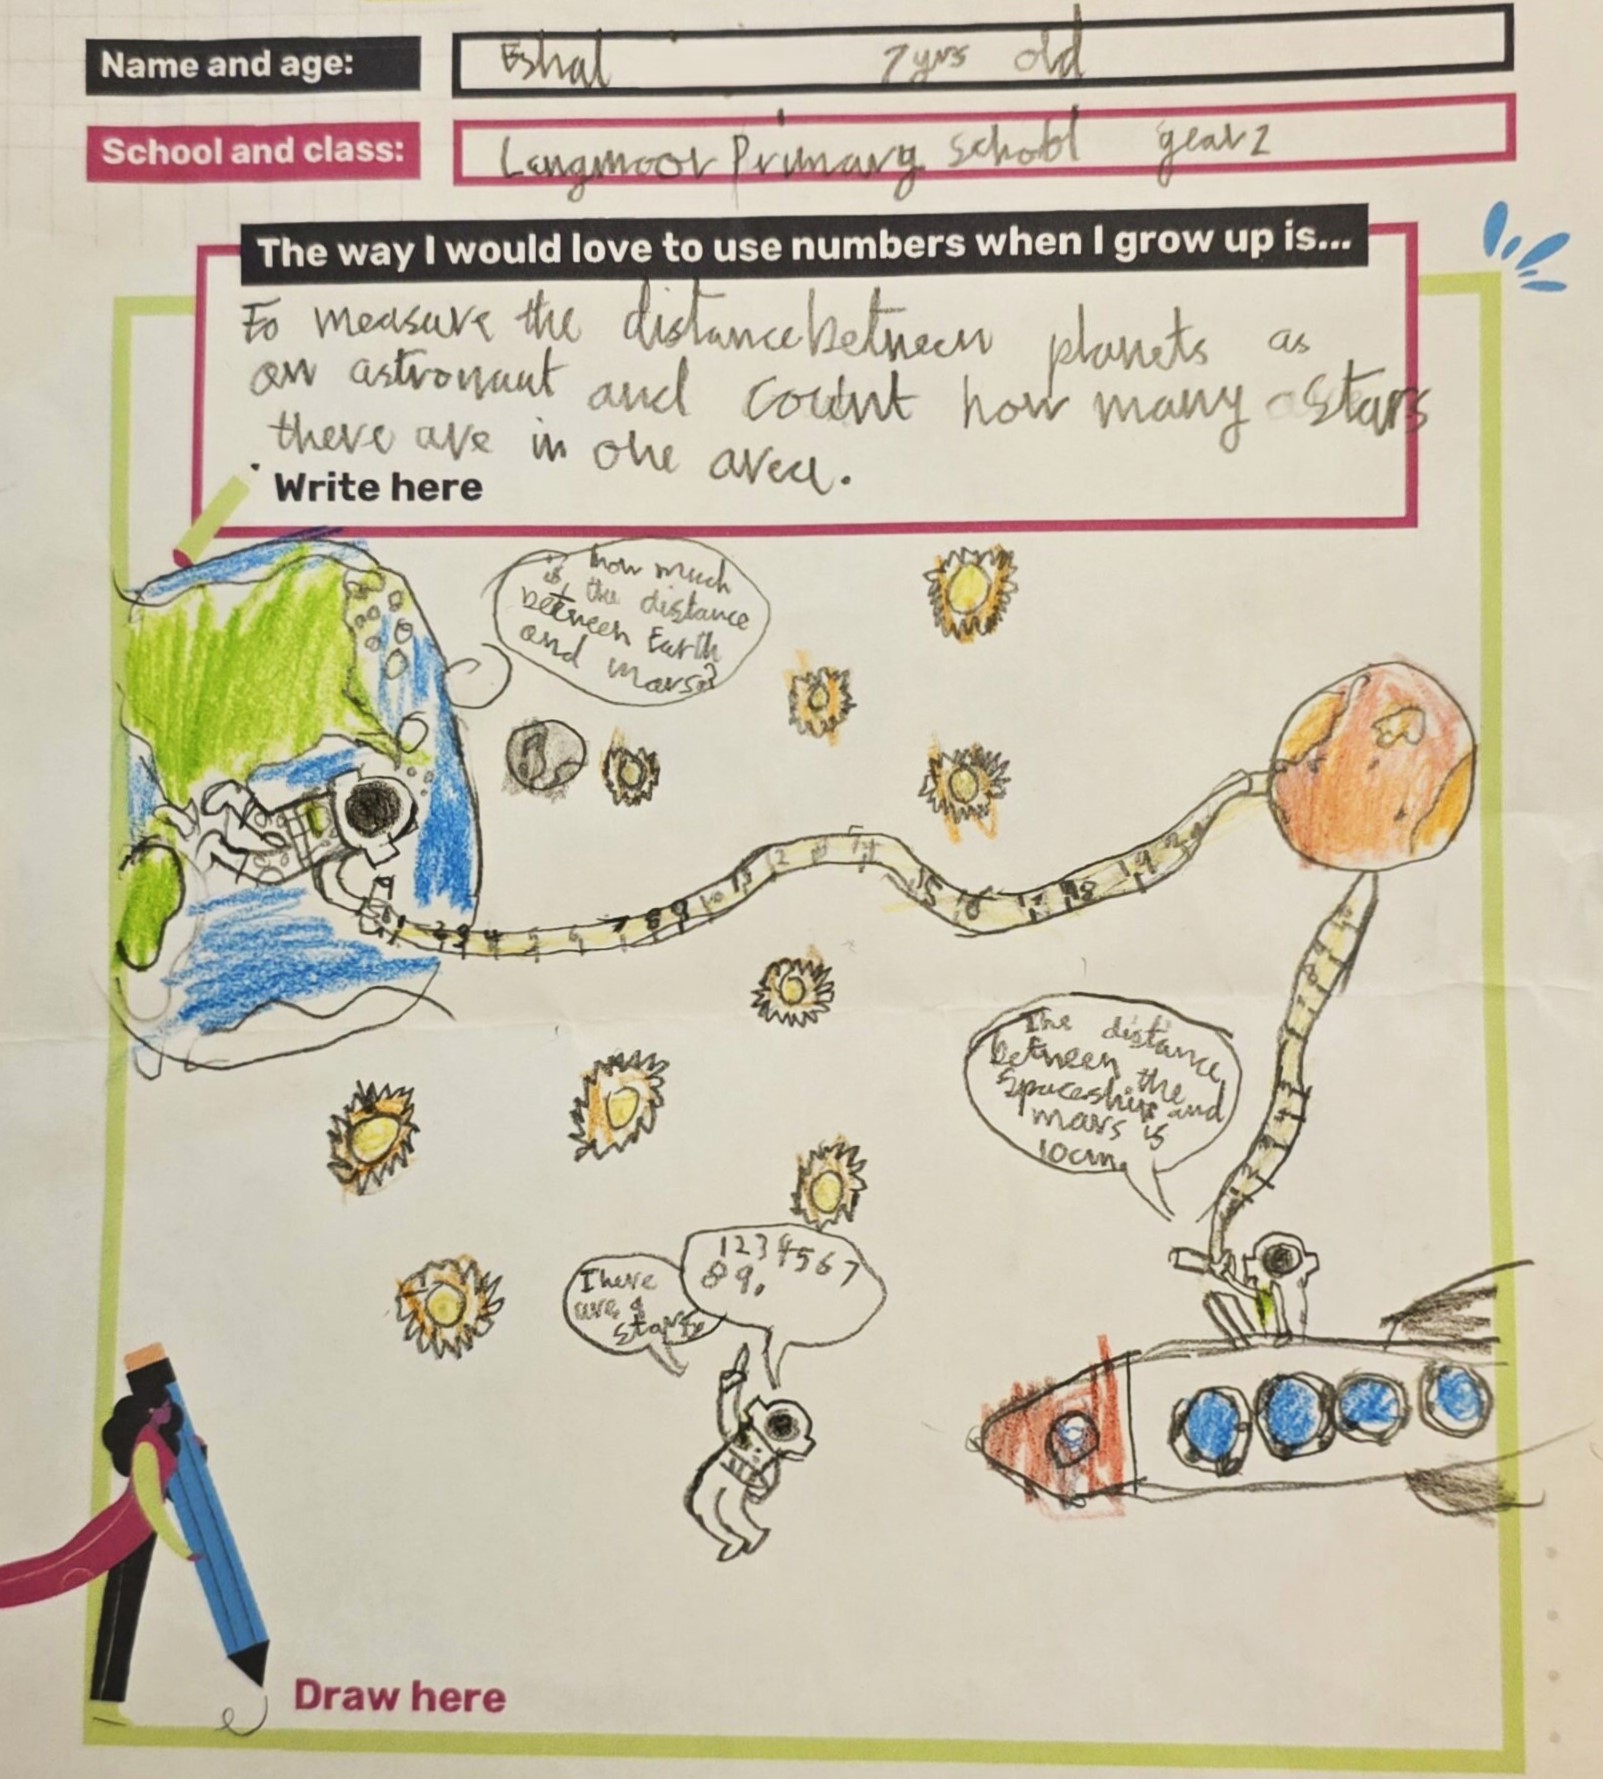 Name and age:
Eshal 7yrs old
School and class:
Langmoor Primary School year 2
The way I would love to use numbers when I grow up is...
To measure the distance between planets as
an astronaut and count how many stars
there are in one area.
Write here
how much
is the distance
between Earth
and mars?
1 2 3 4 5 6 7 8
12
15 16 17 18 19 20
The distance
between the
spaceship and
mars is
10cm
There
are 9
stars
1 2 3 4 5 6 7
8 9.
Draw here